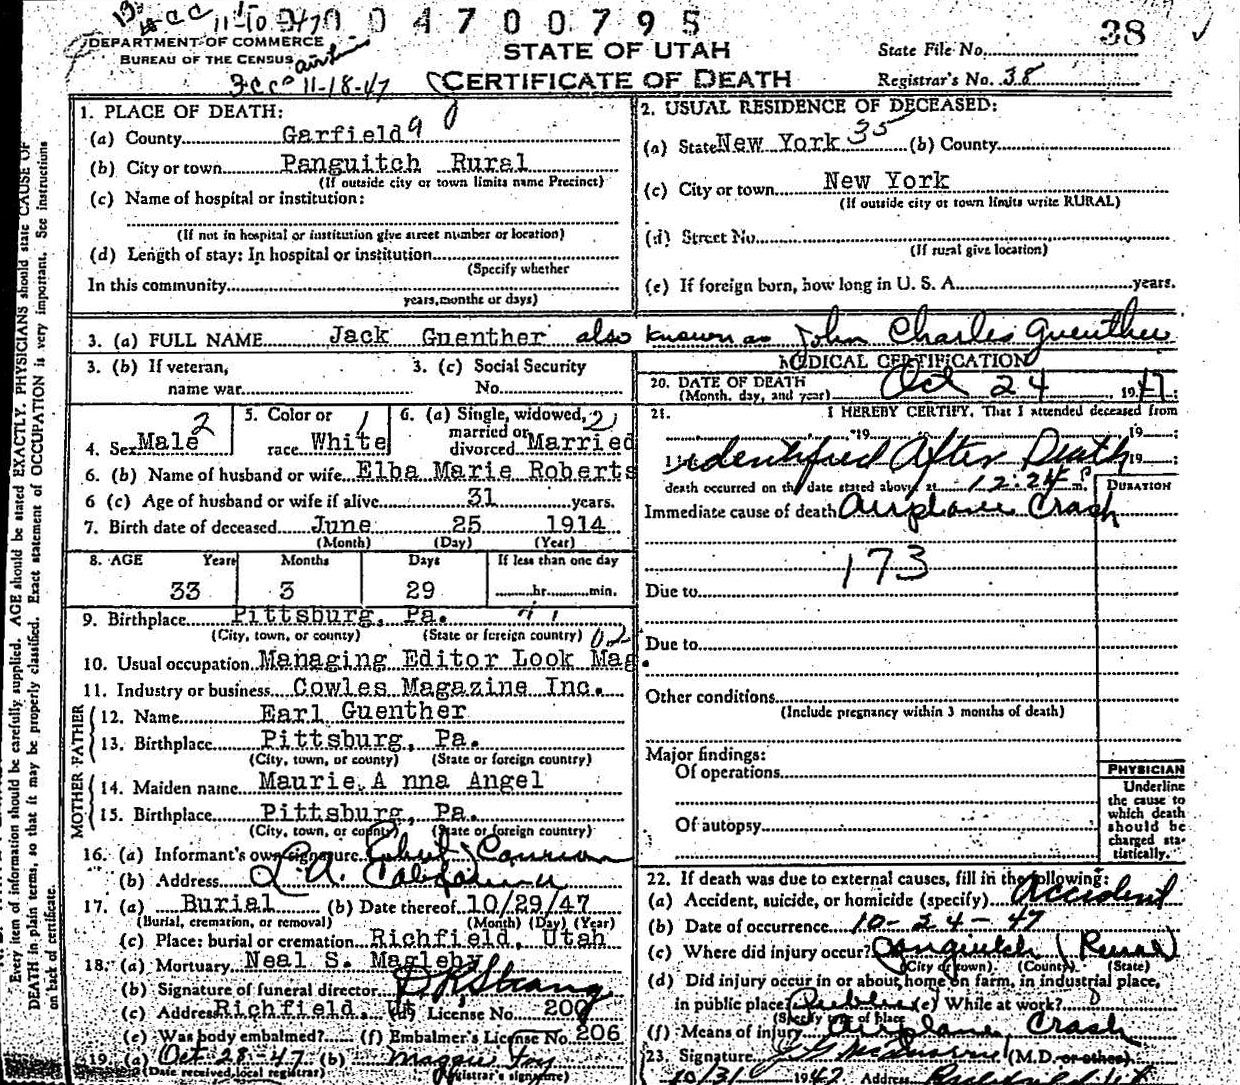 004700795
38
DEPARTMENT OF COMMERCE
BUREAU OF THE CENSUS
11-18-47
STATE OF UTAH
CERTIFICATE OF DEATH
State File No.
Registrar's No. 38
1. PLACE OF DEATH:
(a) County Garfield 9
(b) City or town Panguitch Rural
(If outside city or town limits name Precinct)
(c) Name of hospital or institution:
(If not in hospital or institution give street number or location)
(d) Length of stay: In hospital or institution
(Specify whether
In this community
years, months or days)
2. USUAL RESIDENCE OF DECEASED:
(a) State New York 35 (b) County
(c) City or town New York
(If outside city or town limits write RURAL)
(d) Street No.
(If rural give location)
(e) If foreign born, how long in U. S. A. years.
3. (a) FULL NAME Jack Guenther also known as John Charles Guenther
3. (b) If veteran, name war
3. (c) Social Security No.
4. Sex Male 2
5. Color or race White 1
6. (a) Single, widowed, married or divorced Married 2
6. (b) Name of husband or wife Elba Marie Roberts
6 (c) Age of husband or wife if alive 31 years.
7. Birth date of deceased June 25 1914
(Month) (Day) (Year)
8. AGE Years Months Days If less than one day
33 3 29 hr. min.
9. Birthplace Pittsburg, Pa.
(City, town, or county) (State or foreign country)
10. Usual occupation Managing Editor Look Mag.
11. Industry or business Cowles Magazine Inc.
FATHER
12. Name Earl Guenther
13. Birthplace Pittsburg, Pa.
(City, town, or county) (State or foreign country)
MOTHER
14. Maiden name Maurie A nna Angel
15. Birthplace Pittsburg, Pa.
(City, town, or county) (State or foreign country)
16. (a) Informant's own signature
(b) Address L.A. California
17. (a) Burial (b) Date thereof 10/29/47
(Burial, cremation, or removal) (Month) (Day) (Year)
(c) Place: burial or cremation Richfield, Utah
18. (a) Mortuary Neal S. Magleby
(b) Signature of funeral director
(c) Address Richfield, (d) License No. 200
(e) Was body embalmed? (f) Embalmer's License No. 206
19. (a) Oct 28-47 (b) Maggie Foy
(Date received local registrar) (Registrar's signature)
MEDICAL CERTIFICATION
20. DATE OF DEATH Oct 24 1947
(Month, day, and year)
21. I HEREBY CERTIFY, That I attended deceased from
19
identified After Death 19
death occurred on the date stated above, at 12:24 P m.
DURATION
Immediate cause of death Airplane Crash
173
Due to
Due to
Other conditions
(Include pregnancy within 3 months of death)
Major findings:
Of operations
Of autopsy
PHYSICIAN
Underline the cause to which death should be charged statistically.
22. If death was due to external causes, fill in the following:
(a) Accident, suicide, or homicide (specify) Accident
(b) Date of occurrence 10-24-47
(c) Where did injury occur? Panguitch (Rural)
(City or town) (County) (State)
(d) Did injury occur in or about home on farm, in industrial place,
in public place? Public (e) While at work?
(Specify type of place
(f) Means of injury Airplane Crash
23. Signature (M.D. or other)
10/31 1947 Address
Every item of information should be carefully supplied. AGE should be stated EXACTLY. PHYSICIANS should state CAUSE OF
DEATH in plain terms, so that it may be properly classified. Exact statement of OCCUPATION is very important. See instructions
on back of certificate.